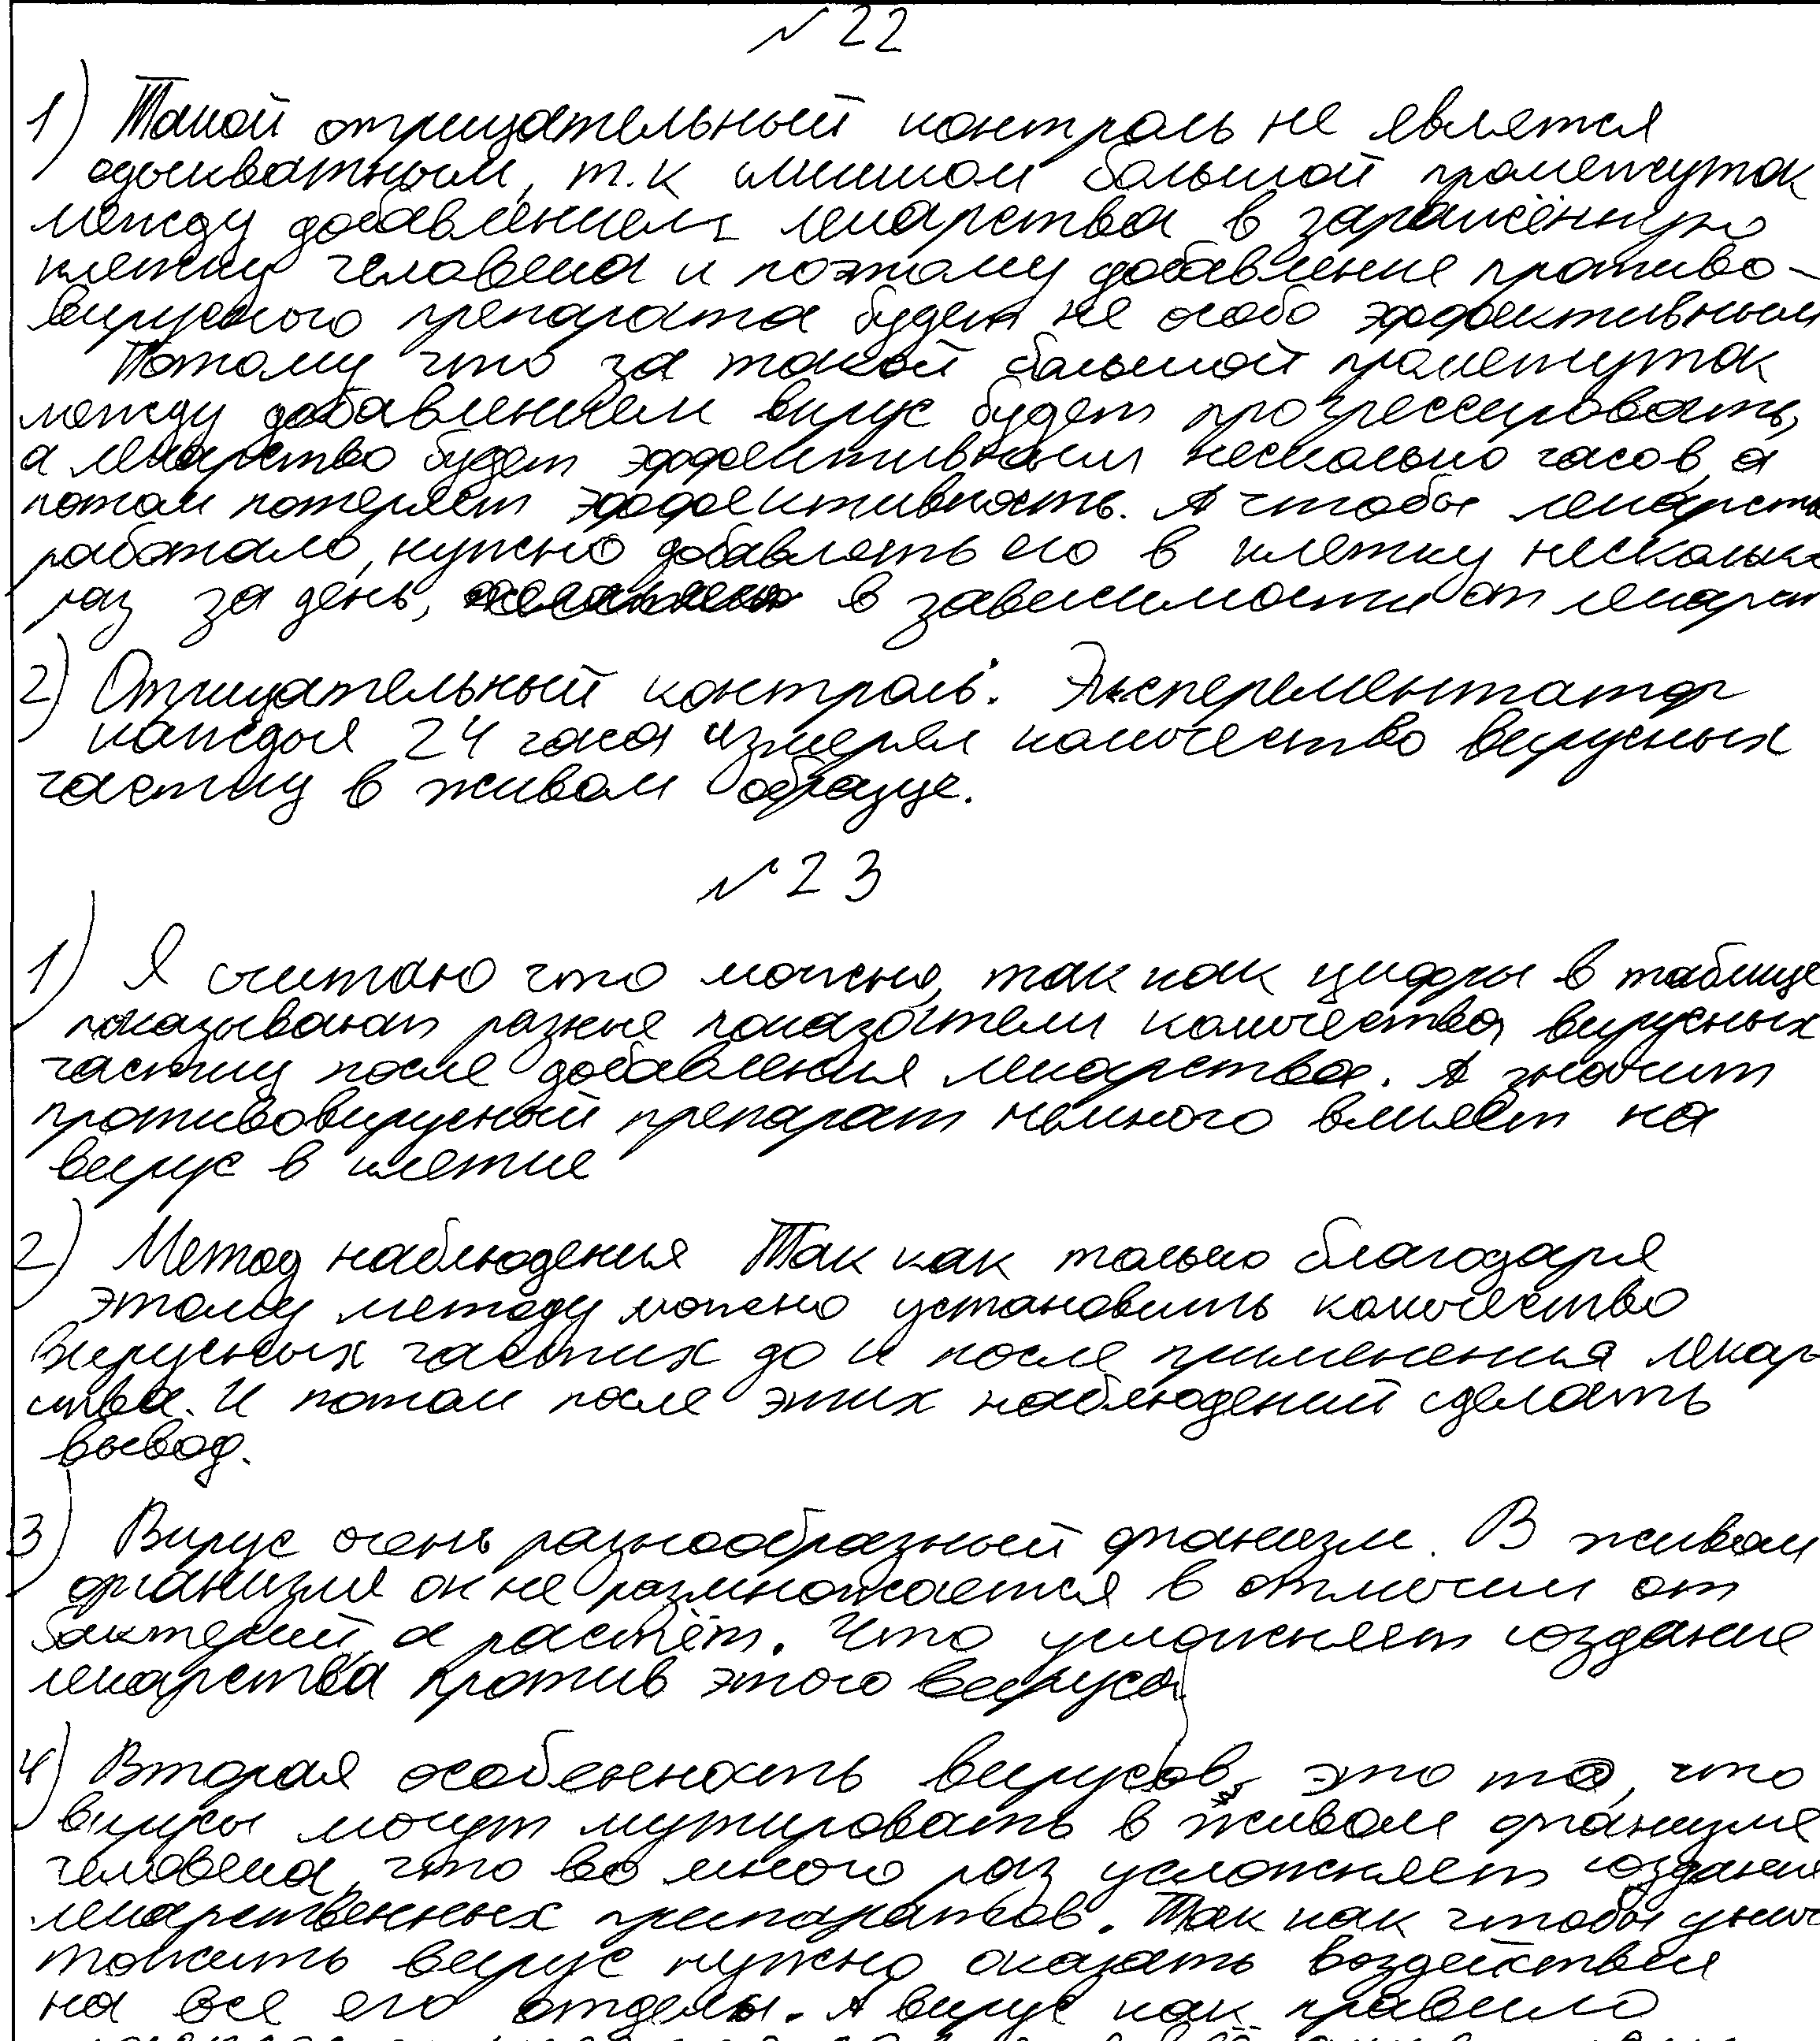 № 22
1) Такой отрицательный контроль не является
адыкватным, т.к слишком большой промежуток
между добавлением лекарства в заражённую
клетку человека и поэтому добавление противо-
вирусного препарата будет не особо эффективным
Потому что за такой большой промежуток
между добавлением вирус будет прогрессировать,
а лекарство будет эффективным несколько часов, а
потом потеряет эффективность. А чтобы лекарств
работало, нужно добавлять его в клетку несколько
раз за день, в зависимости от лекарст
2) Отрицательный контроль. Эксперементатор
каждые 24 часа измерял количество вирусных
частиц в живом образце.
№ 23
1) Я считаю что можно, так как цифры в таблице
показывают разные показатели количества вирусных
частиц после добавления лекарства. А значит
противовирусный препарат немного влияет на
вирус в клетке
2) Метод наблюдения Так как только благодаря
этому методу можно установить количество
вирусных частих до и после применения лекар-
ства. И потом после этих наблюдений сделать
вывод.
3) Вирус очень разнообразный организм. В живом
организме он не размножается в отличии от
бактерий, а растёт. Что усложняет создание
лекарства против этого вируса.
4) Вторая особенность вирусов, это то, что
вирусы могут мутировать в живом организме
человека, что во много раз усложняет создание
лекарственных препаратов. Так как чтобы унич
тожить вирус нужно оказать воздействие
на все его отделы. А вирус как правило